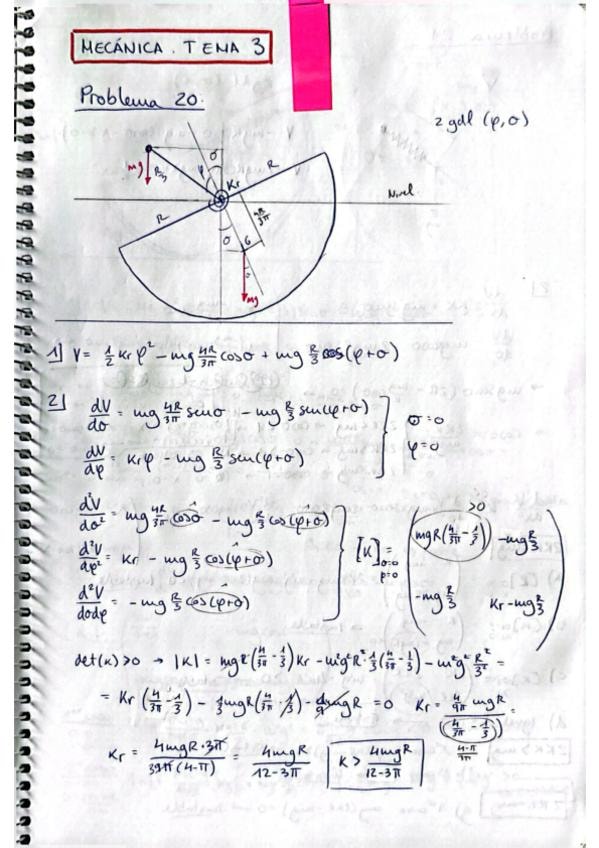 MECÁNICA. TEMA 3
Problema 20.
2 gdl (φ, θ)
θ
φ
R
mg
R/3
Kr
Nivel
R
4R/3π
θ
G
mg
1] V = 1/2 Kr φ² - mg 4R/3π cosθ + mg R/3 cos(φ+θ)
2] dV/dθ = mg 4R/3π senθ - mg R/3 sen(φ+θ)
θ=0
dV/dφ = Krφ - mg R/3 sen(φ+θ)
φ=0
d²V/dθ² = mg 4R/3π cosθ - mg R/3 cos(φ+θ)
d²V/dφ² = Kr - mg R/3 cos(φ+θ)
d²V/dθdφ = -mg R/3 cos(φ+θ)
[K] θ=0 φ=0 =
>0
mgR(4/3π - 1/3) -mg R/3
-mg R/3 Kr - mg R/3
det(K) >0 → |K| = mgR(4/3π - 1/3)Kr - m²g²R² 1/3(4/3π - 1/3) - m²g² R²/3² =
= Kr (4/3π - 1/3) - 1/3 mgR(4/3π - 1/3) - 1/9 mgR = 0 Kr = 4/9π mgR / (4/3π - 1/3) =
4-π/3π
Kr = 4mgR·3π / 39π(4-π) = 4mgR / 12-3π
K > 4mgR / 12-3π